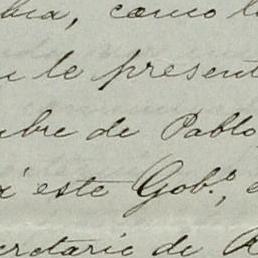 bia, como l
u le present
mbre de Pablo
á este Gob.º, e
cretario de R